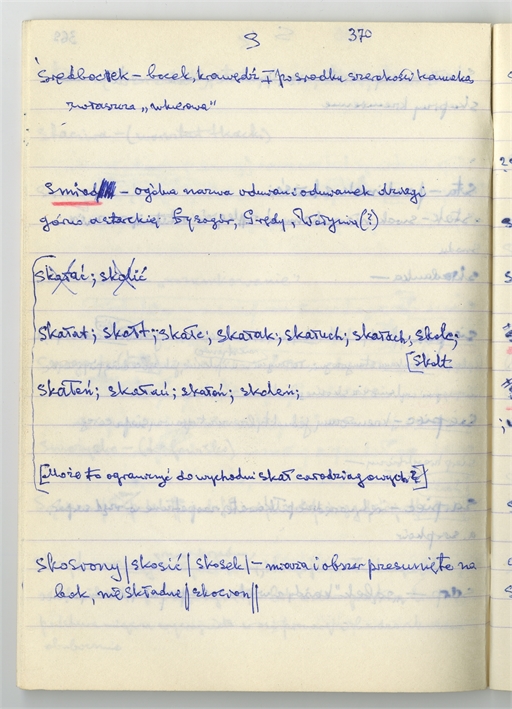 S 370
Średboczek – boczek, krawędź I pośrodku szerokości kamaka
zwłaszcza „wkierowa”
Smiad – ogólna nazwa odmian i odmianek drzazgi
górno astackiej Łysogór, Grędy, Wołynia (?)
Skałać; skolić
Skałat; skałt; skałc; skałak; skałuch; skałach, skolc;
[skolt
Skałeń; skałań; skałoń; skoleń;
[Może to ograniczyć do wychodni skał całodziagowych?]
Skosrony | skosić | skosek | – miazra i obszar przesunięte na
bok, nie składne | skocron ||